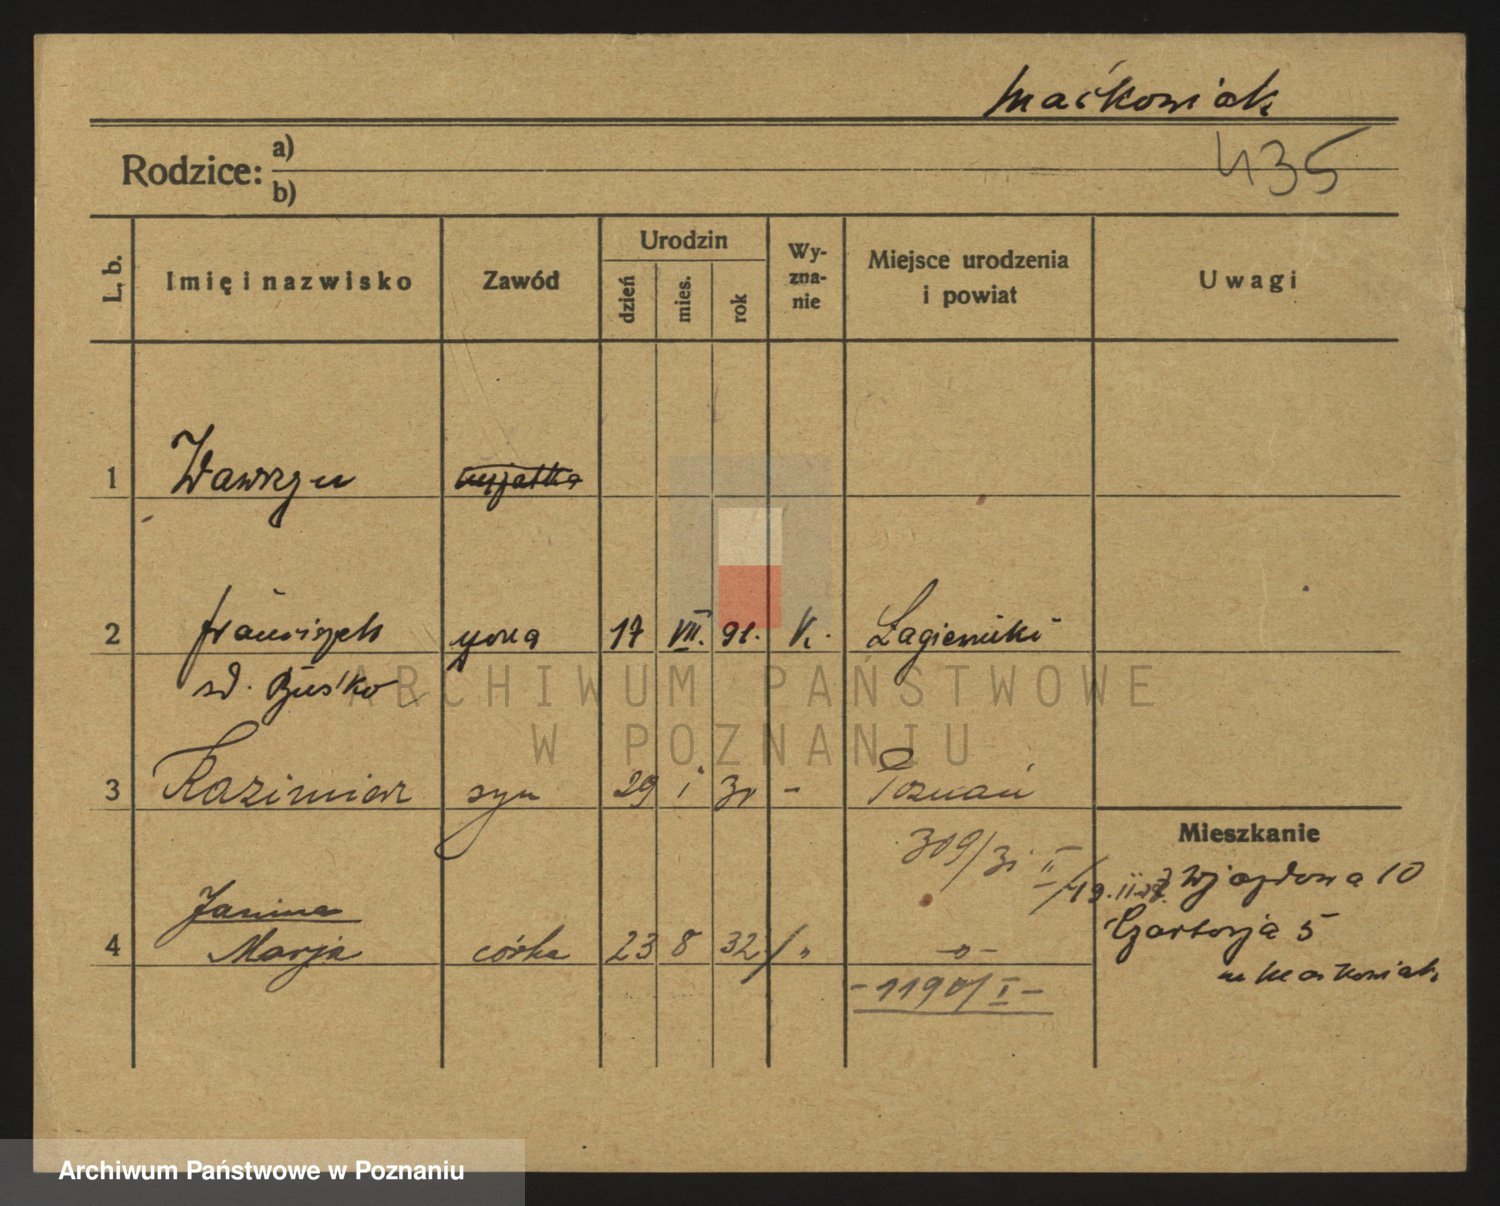 Maćkowiak
435
Rodzice: a)
b)
L. b.
Imię i nazwisko
Zawód
Urodzin
dzień
mies.
rok
Wy-
zna-
nie
Miejsce urodzenia
i powiat
Uwagi
1 Wawrzyn
2 Franciszek żona 17 VII. 91. k. Łagiewniki
zd. Buśko
3 Kazimierz syn 29 i 31 - Poznań
309/31 II
Mieszkanie
Wjazdowa 10
Garbarska 5
m Maćkowiak
Janina
4 Marja córka 23 8 32 " -"-
-1190/I-
ARCHIWUM PAŃSTWOWE
W POZNANIU
Archiwum Państwowe w Poznaniu